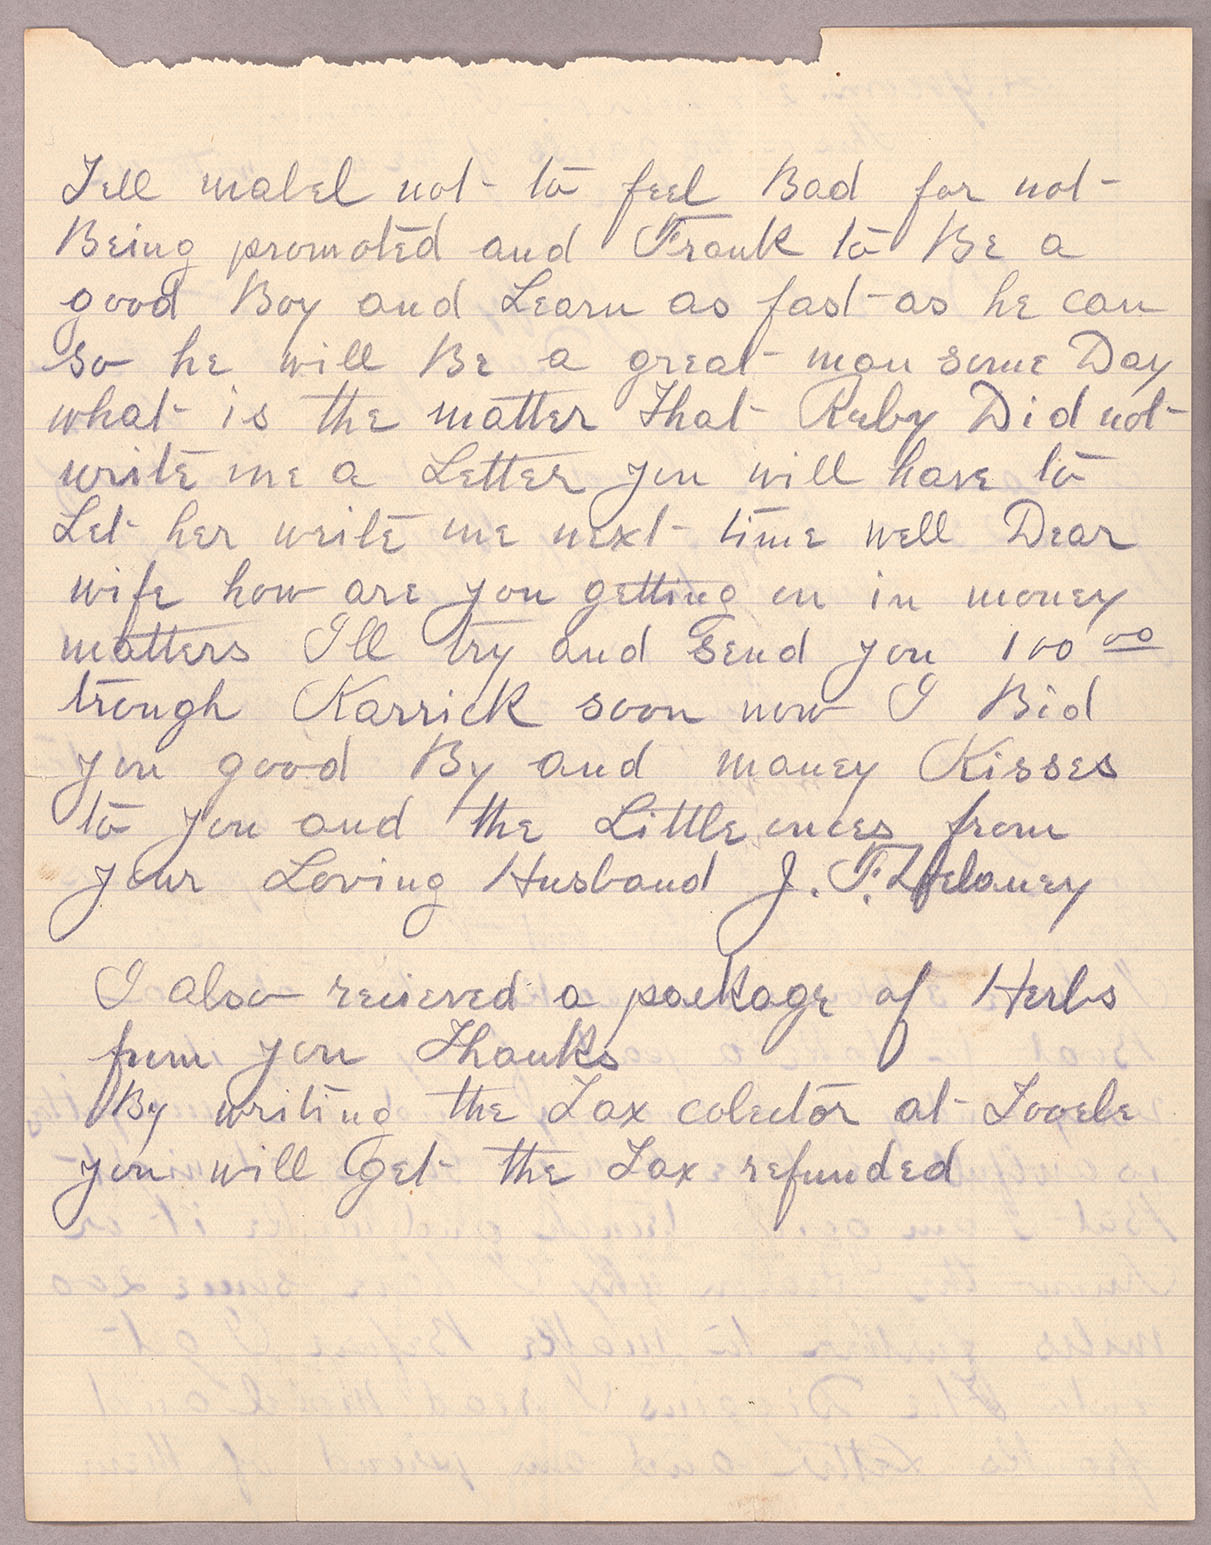 Tell mabel not to feel Bad for not
Being promoted and Frank to Be a
good Boy and Learn as fast as he can
so he will Be a great man some Day
what is the matter That Ruby Did not
write me a Letter you will have to
Let her write me next time well Dear
wife how are you getting on in money
matters I'll try and send you 100 00
trough Karrick soon now I Bid
you good By and maney Kisses
to you and the Little onces from
your Loving Husband J. F. Delaney
I also recieved a package of Herbs
from you Thanks
By writing the Tax colector at Tooele
you will get the Tax refunded